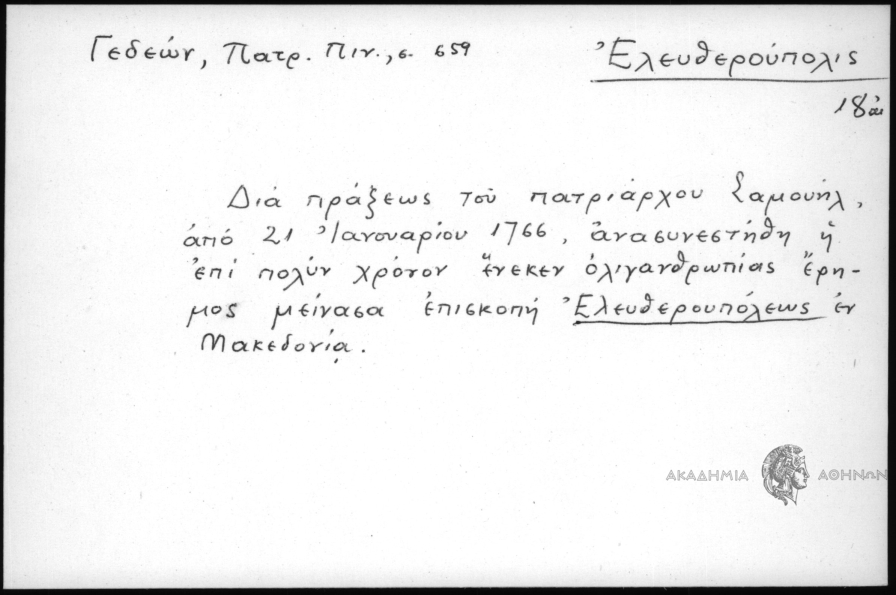 Γεδεών, Πατρ. Πιν., σ. 659
Ἐλευθερούπολις
18 αἰ
Διά πράξεως τοῦ πατριάρχου Σαμουήλ,
ἀπό 21 Ἰανουαρίου 1766, ἀνασυνεστήθη ἡ
ἐπί πολύν χρόνον ἕνεκεν ὀλιγανθρωπίας ἔρη-
μος μείνασα ἐπισκοπή Ἐλευθερουπόλεως ἐν
Μακεδονίᾳ.
ΑΚΑΔΗΜΙΑ ΑΘΗΝΩΝ